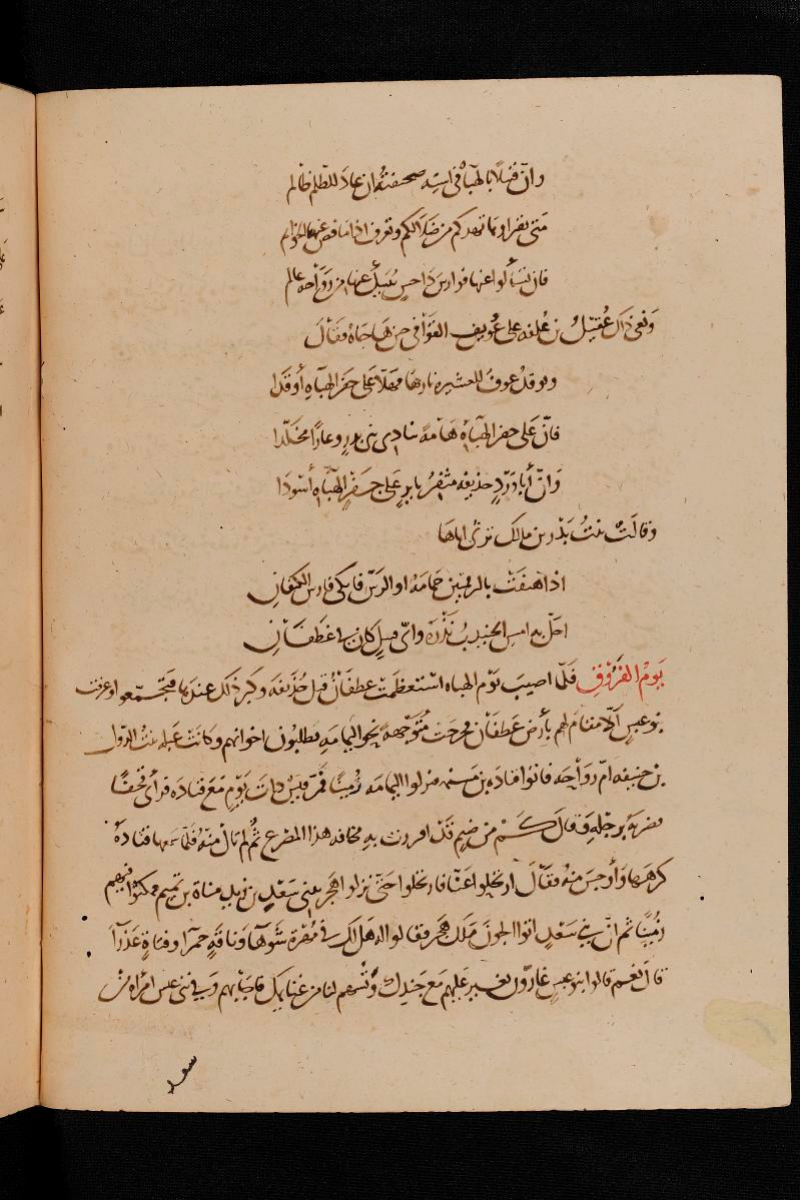 وان قتيلا بالهباة في استه صحيفته ان عاد للظلم ظالم
متى تقراوها تهدكم من ضلالكم وتعرف اذا ما فض عنها الخواتم
فان تسألوا عنها فوارس داحس ينبئك عنها من رواحة عالم
ونعى ذاك عُقيل بن عُلفه على عُويف القوافى حين هاجاه فقال
ويوقد عوفٌ للعشيره نارها فهلا على جفر الهباه أوقدا
فانّ على جفر الهباه هامة تنادى بنى بدرٍ وعارًا مخلّدا
وَانّ أبا وَردٍ حذيفه مثفرٌ بايرٍ على جَفرِ الهباه أسودا
وقالت بنتُ بَدْر بن مالك ترثى اباها
اذا هتفت بالرقمتين حمامة او الرسّ فابكى فارس الكتفانِ
احلّ به امس الجنيدب نذره واىّ قتيلٍ كان فى غطفانِ
يَومُ الفَرُوقِ فلمّا اصيب يَوم الهباه استعظمت غطفانُ قتل حُذيفه وكبر ذلك عندها فتجمّعوا وعرفت
بنو عبسٍ ألا مقام لهم بأرض غطفان فخرجت متوجّهة نحو اليمامه يطلبون اخوالهم وكانت عبله بنتُ الدّول
بن حنيفه امّ رواحه فاتوا قتاده بن مسلمه فنزلوا اليمامه زُمينًا فمرّ قيسٌ ذات يومٍ مع قتاده فرأى قحفًا
فضربهُ برجلهِ وقال كم من ضيمٍ قد اقررت به مخافة هذا المصرع ثُم لم تأل منهُ فلمّا سمعها قتادهُ
كرهها وأوجس منهُ فقال ارتحلوا عنّا فارتحلوا حتّى نزلوا هجر ببنى سعد بن زيد مناة بن تميم فمكثوا فيهم
زُمينًا ثم انّ بنى سعدٍ اتوا الجونَ ملك هجر فقالوا له هل لك فى مُهرة شوهآ وناقةٍ حمرآ وفتاةٍ عذرآ
قال نعم قالوا بنو عبسٍ غارّون تغير عليهم مع جندك وتُسهم لنا من غنايمك فاجابهم وفى بنى عبس امرأة من
سعد